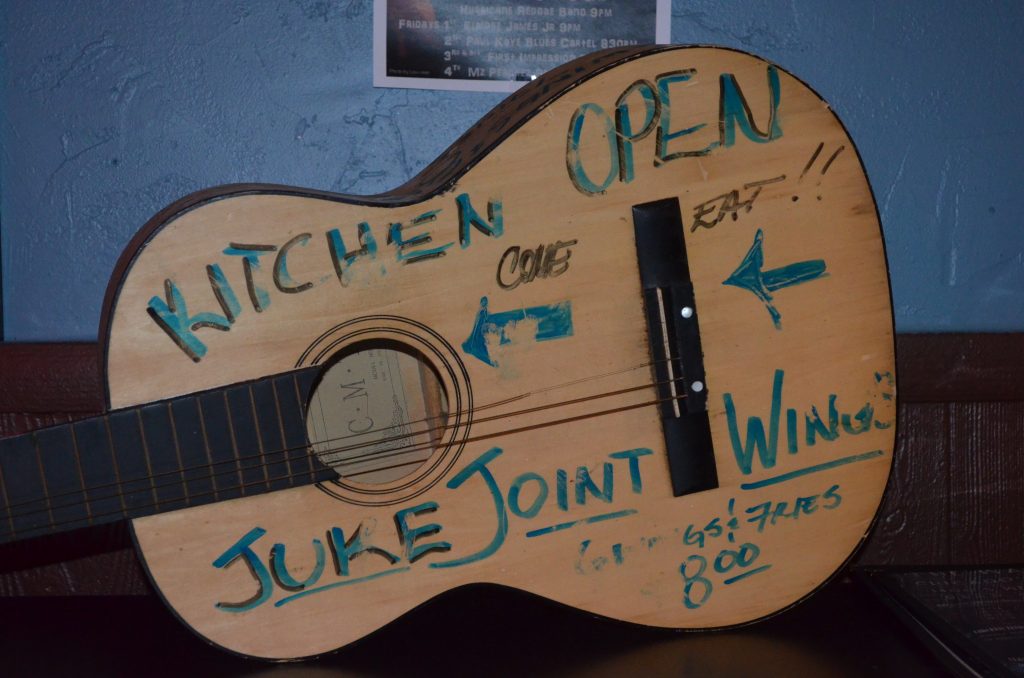 Hurricane Reggae Band 9pm
Fridays 1st Elmore James Jr 9pm
2nd Paul Kaye Blues Cartel 830pm
First Impression
4th Mz
KITCHEN OPEN
COME EAT!!
C. M.
JUKE JOINT WINGS
GS & FRIES
8.00